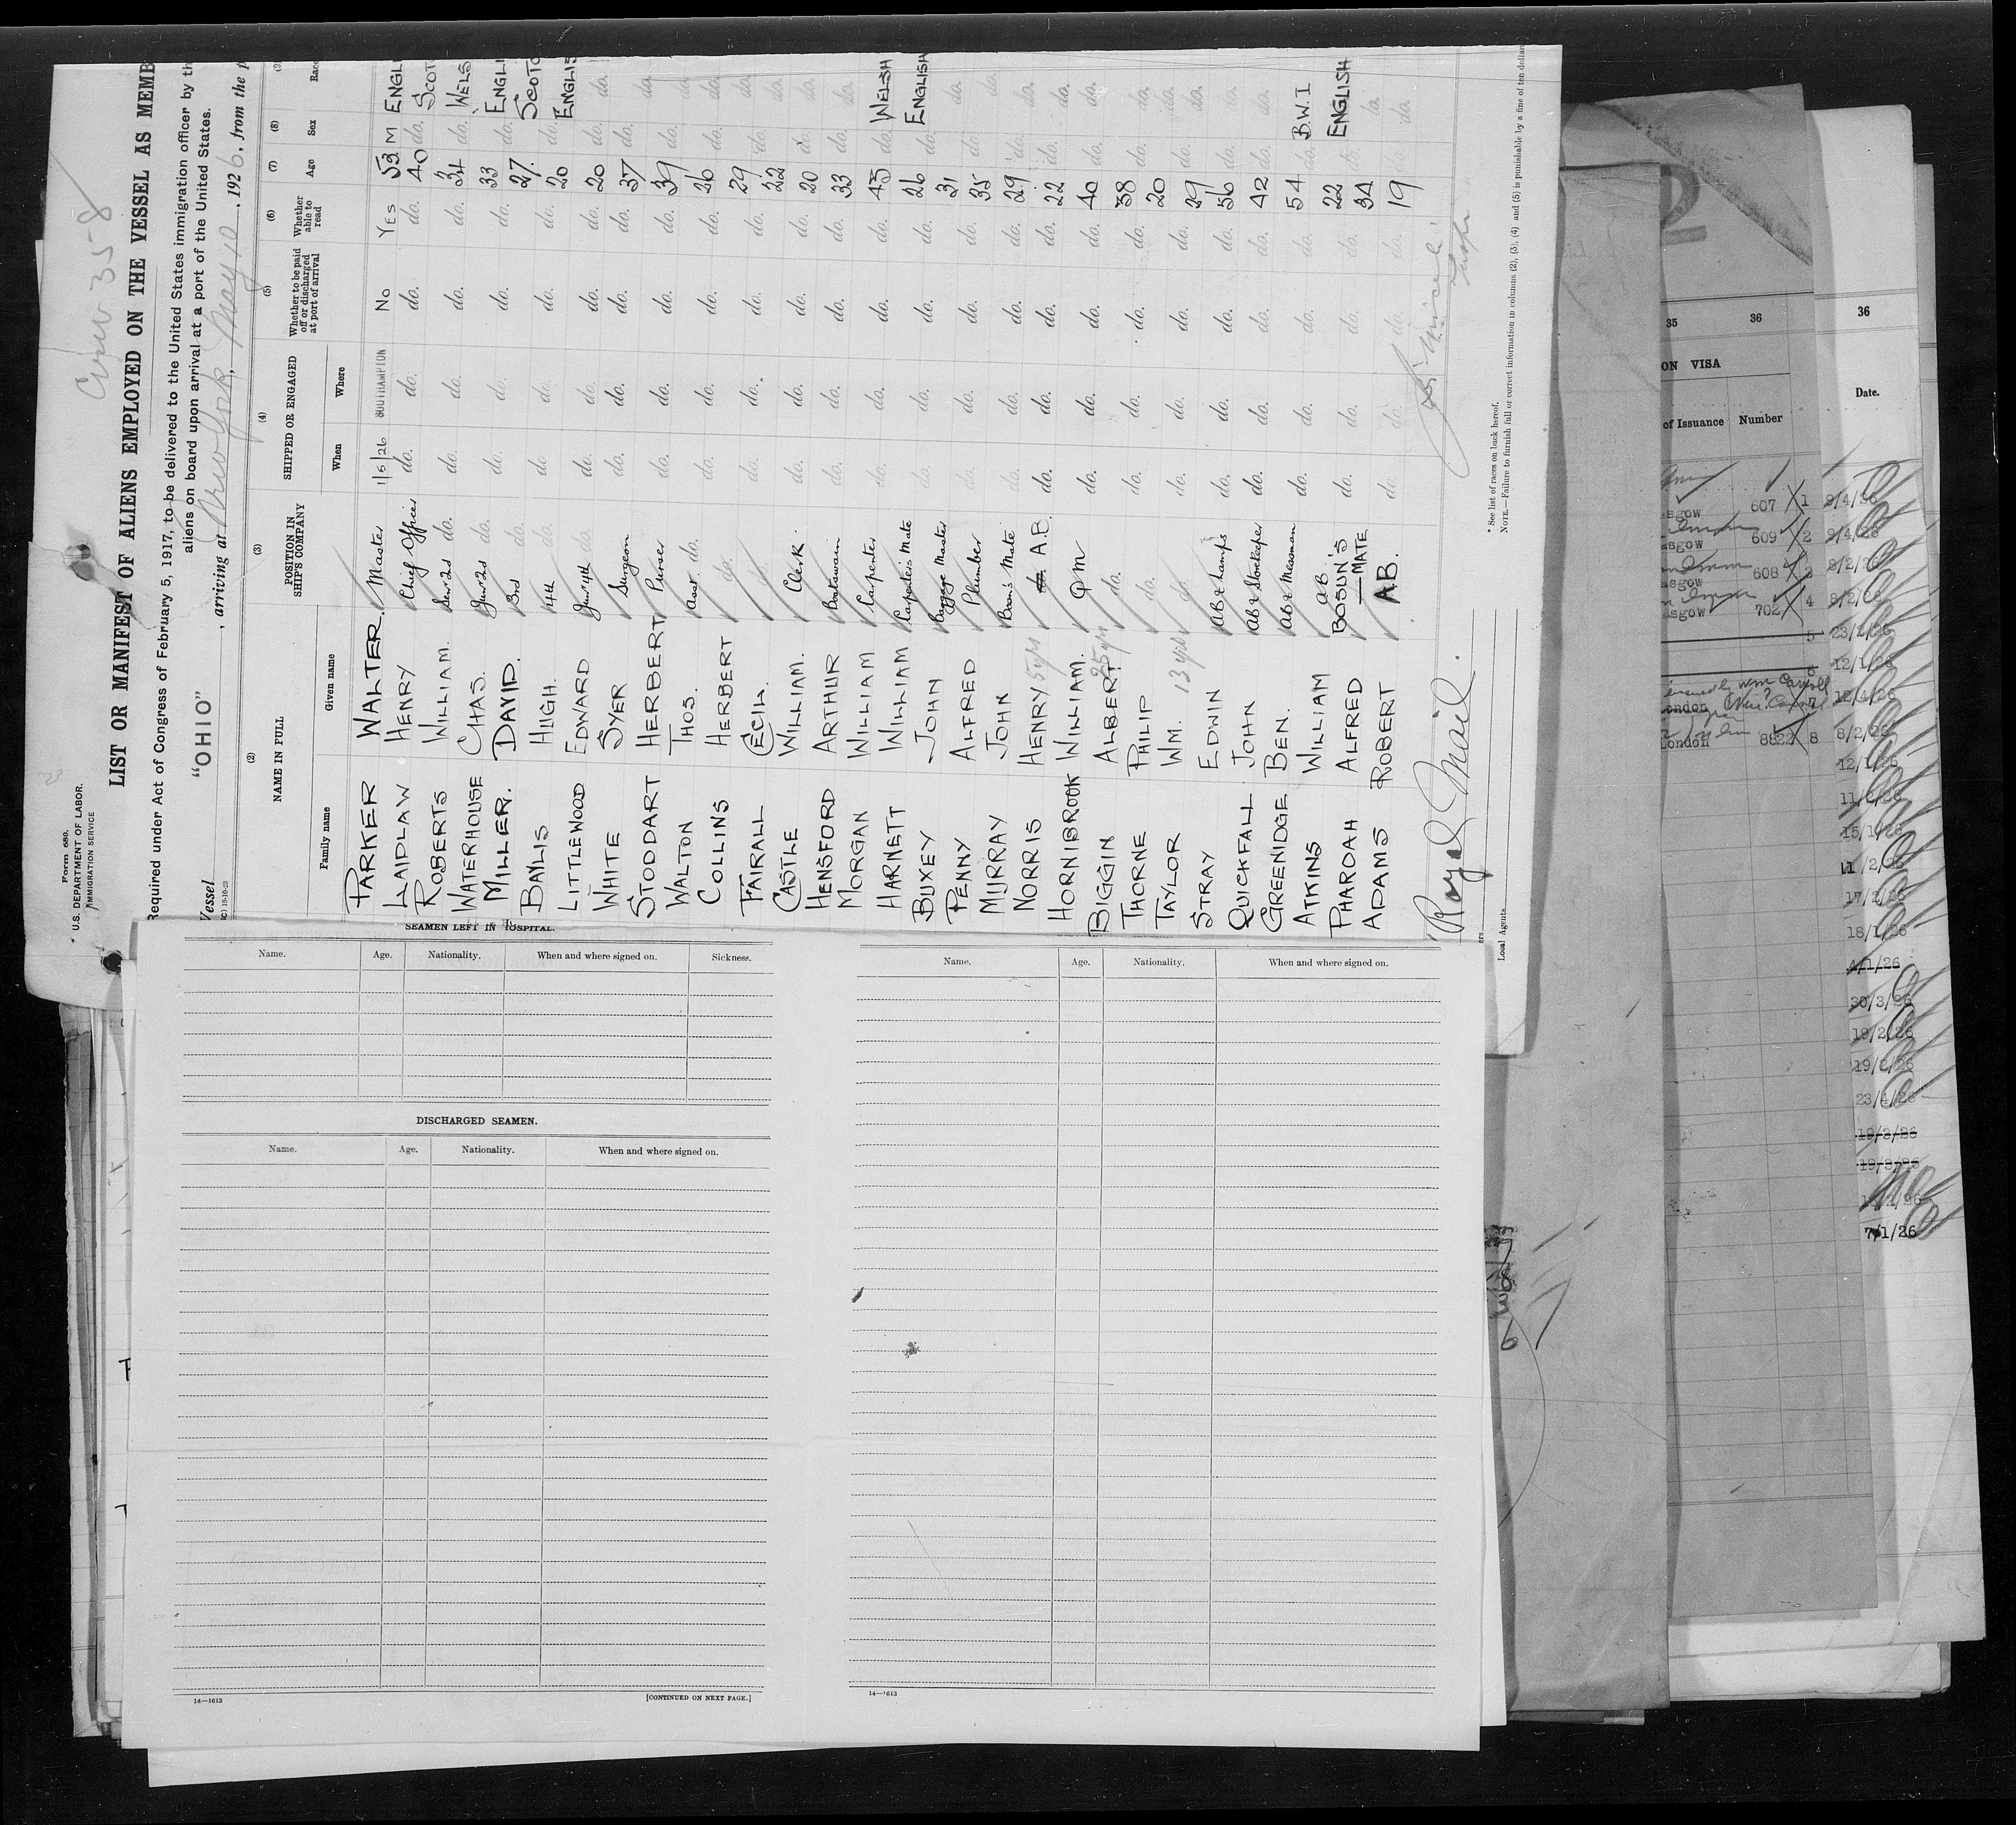 Crew 35-8
Form 680.
U.S. DEPARTMENT OF LABOR,
IMMIGRATION SERVICE
LIST OR MANIFEST OF ALIENS EMPLOYED ON THE VESSEL AS MEMB
Required under Act of Congress of February 5, 1917, to be delivered to the United States immigration officer by th
aliens on board upon arrival at a port of the United States.
Vessel "OHIO", arriving at New York, May 10, 1926, from the
(2) (3) (4) (5) (6) (7) (8)
NAME IN FULL POSITION IN SHIP'S COMPANY SHIPPED OR ENGAGED Whether to be paid off or discharged at port of arrival Whether able to read Age Sex Race
Family name Given name When Where
PARKER WALTER. Master 1/5/26 SOUTHAMPTON No YES 53 M ENGL
LAIDLAW HENRY Chief Officer do. do. do. do. 40 do. SCOT
ROBERTS WILLIAM. Senr 2nd do. do. do. do. do. 34 do. WELS
WATERHOUSE CHAS. Junr 2nd do. do. do. do. do. 33 do. ENGLI
MILLER. DAVID. 3rd do. do. do. do. do. 27. do. SCOTC
BAYLIS HUGH. 4th do. do. do. do. do. 20 do. ENGLIS
LITTLEWOOD EDWARD Junr 4th do. do. do. do. do. 20 do. do.
WHITE SYER Surgeon do. do. do. do. 37 do. do.
STODDART HERBERT Purser do. do. do. do. 39 do. do.
WALTON THOS. Asst. do. do. do. do. do. 26 do. do.
COLLINS HERBERT do. do. do. do. do. 29 do. do.
FAIRALL CECIL. do. do. do. do. do. 22 do. do.
CASTLE WILLIAM. Clerk. do. do. do. do. 20 do. do.
HENSFORD ARTHUR Boatswain do. do. do. do. 33 do. do.
MORGAN WILLIAM Carpenter do. do. do. do. 43 do. WELSH
HARNETT WILLIAM Carpenters Mate do. do. do. do. 26 do. ENGLISH
BUXEY JOHN Baggage Master do. do. do. do. 31 do. do.
PENNY ALFRED Plumber do. do. do. do. 35 do. do.
MURRAY JOHN Bosn's Mate do. do. do. do. 29 do. do.
NORRIS HENRY 5 yrs A.B. do. do. do. do. 22 do. do.
HORNIBROOK WILLIAM. QM do. do. do. do. 40 do. do.
BIGGIN ALBERT 25 yrs do. do. do. do. do. 38 do. do.
THORNE PHILIP do. do. do. do. do. 20 do. do.
TAYLOR WM. 13 yrs do. do. do. do. do. 29 do. do.
STRAY EDWIN AB & Lamps do. do. do. do. 56 do. do.
QUICKFALL JOHN AB & Storekeeper do. do. do. do. 42 do. do.
GREENIDGE BEN. AB & Messman do. do. do. do. 54 do. B.W.I
ATKINS WILLIAM AB. do. do. do. do. 22 do. ENGLISH
PHAROAH ALFRED BOSUN'S MATE do. do. do. do. 34 do. do.
ADAMS ROBERT A.B. 19 do. do.
Royal Mail.
Local Agents
* See list of races on back hereof.
NOTE.—Failure to furnish full or correct information in columns (2), (3), (4) and (5) is punishable by a fine of ten dollar
SEAMEN LEFT IN HOSPITAL.
Name. Age. Nationality. When and where signed on. Sickness.
DISCHARGED SEAMEN.
Name. Age. Nationality. When and where signed on.
14—1613
[CONTINUED ON NEXT PAGE.]
Name. Age. Nationality. When and where signed on.
14—1613
35 36
ON VISA
of Issuance Number
asgow 607 1
asgow 609 2
asgow 608 3
asgow 702 4
5
6
London 7
London 8822 8
36
Date.
9/4/26
9/4/26
8/2/26
8/2/26
23/2/26
12/1/26
12/4/26
8/2/26
12/1/26
11/2/26
15/1/26
11/2/26
17/2/26
18/1/26
4/1/26
30/3/26
19/2/26
19/2/26
23/4/26
19/3/26
19/3/26
7/1/26